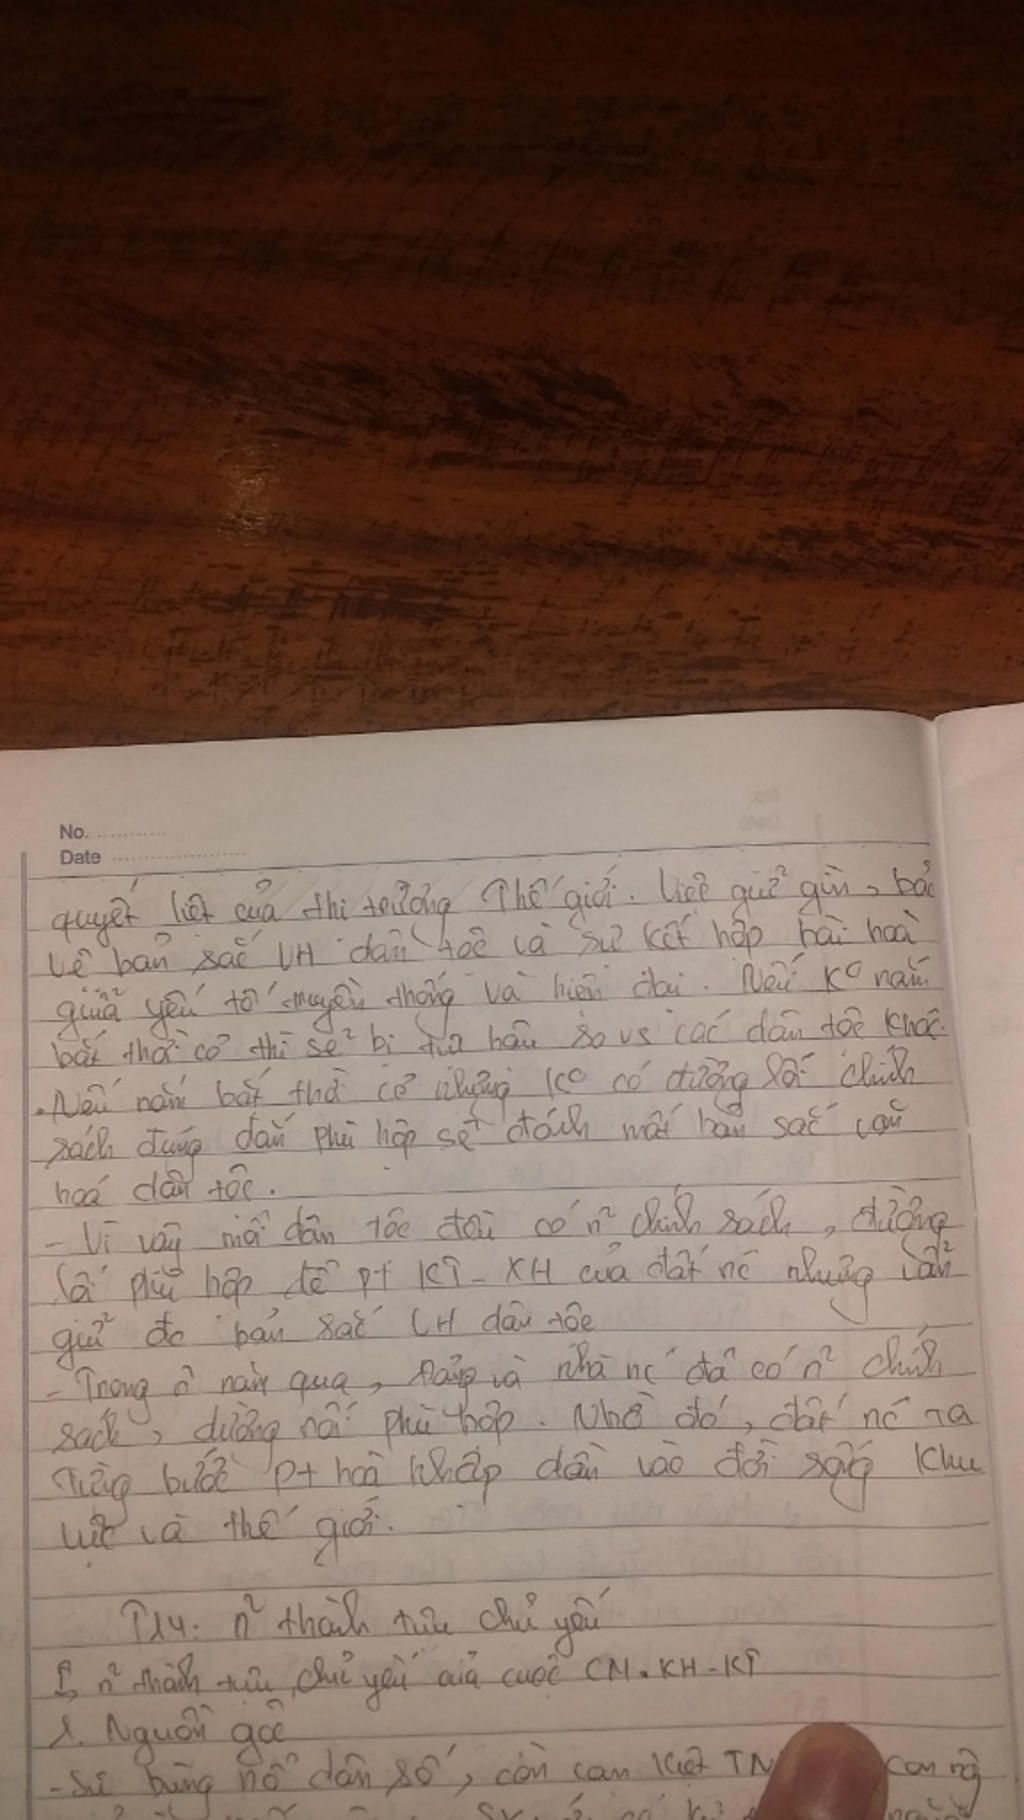 No.
Date
quyết liệt của thị trường Thế giới. Việc giữ gìn, bảo
vệ bản sắc VH dân tộc và sự kết hợp hài hoà
giữa yếu tố truyền thống và hiện đại. Nếu K° nắm
bắt thời cơ thì sẽ bị tụt hậu so vs các dân tộc khác.
.Nếu nắm bắt thời cơ nhưng K° có đường lối chính
sách đúng đắn phù hợp sẽ đánh mất bản sắc văn
hoá dân tộc.
- Vì vậy mỗi dân tộc đều có n² chính sách, đường
lối phù hợp để pt KT-XH của đất nc nhưng vẫn
giữ đc bản sắc VH dân tộc
- Trong n² năm qua, Đảng và nhà nc đã có n² chính
sách, đường nối phù hợp. Nhờ đó, đất nc ta
từng bước pt hoà nhập dần vào đời sống khu
vực và thế giới.
n² thành tựu chủ yếu
I, n² thành tựu chủ yếu của cuộc CM.KH-KT
1. Nguồn gốc
- Sự bùng nổ dân số, cạn kiệt TN con ng